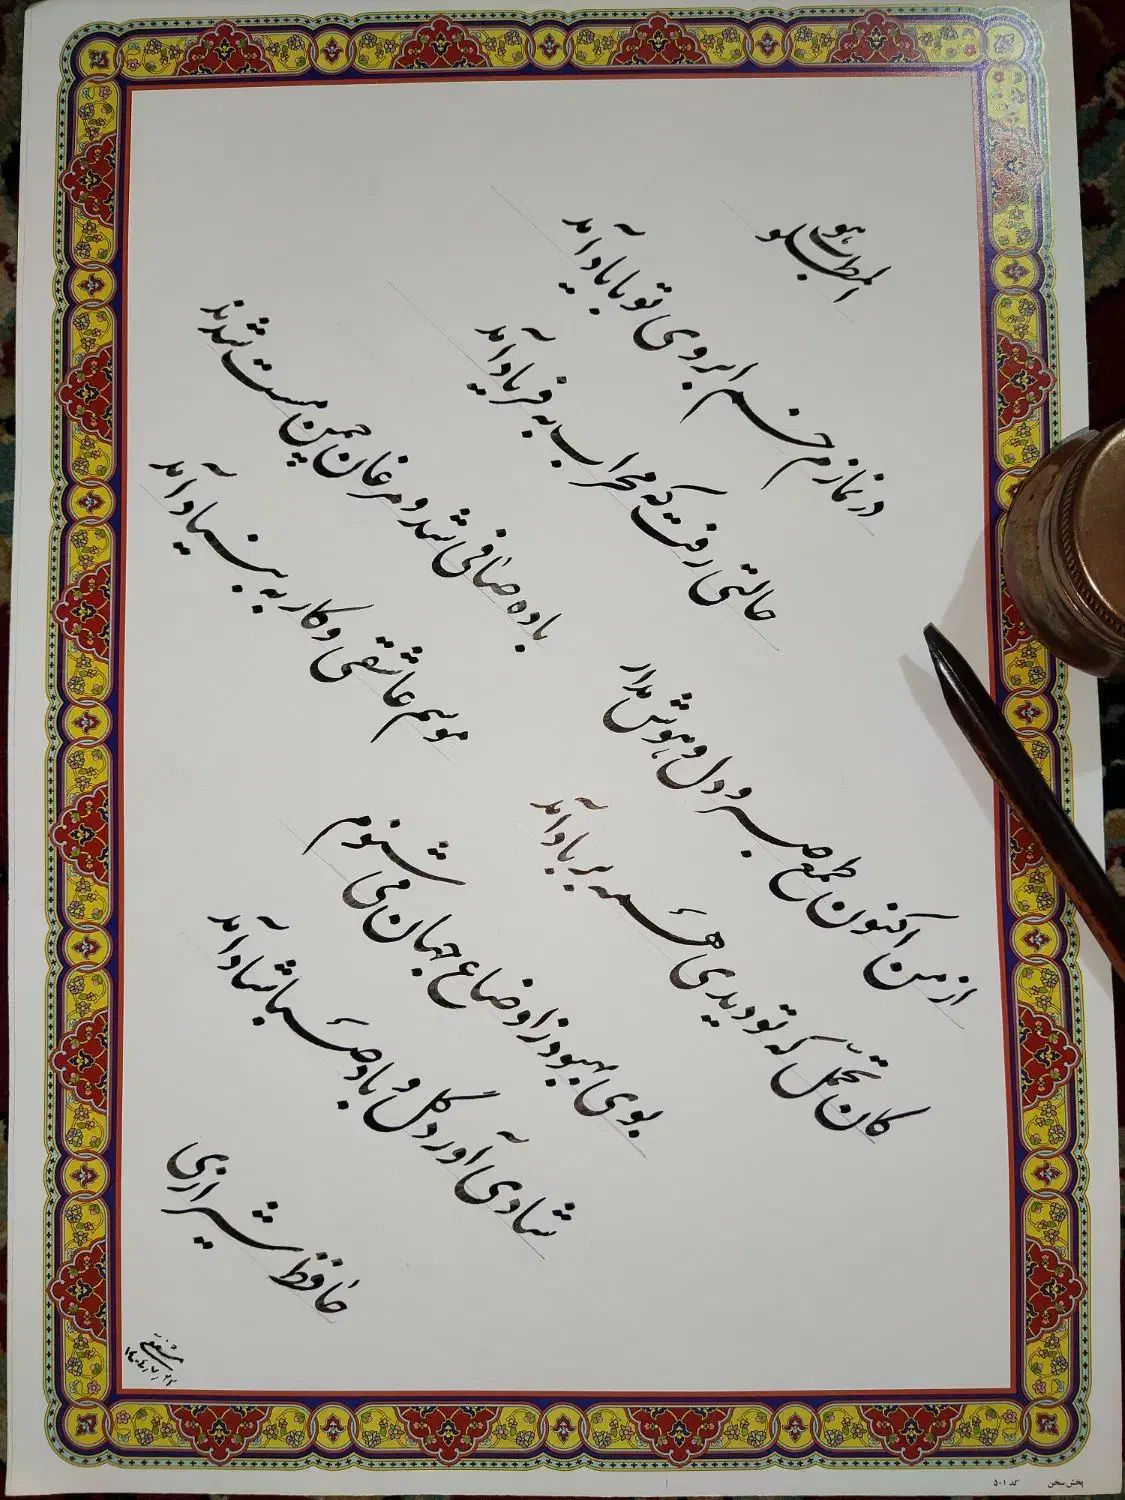 هو المطلوب
در نمازم خم ابروی تو با یاد آمد
حالتی رفت که محراب به فریاد آمد
از من اکنون طمع صبر و دل و هوش مدار
کان تحمّل که تو دیدی همه بر باد آمد
باده صافی شد و مرغان چمن مست شدند
موسم عاشقی و کار به بنیاد آمد
بوی بهبود ز اوضاع جهان می شنوم
شادی آورد گل و باد صبا شاد آمد
حافظ شیرازی
۱۴۰۴/۷/۲۲
پخش سخن
کد ۵۰۱